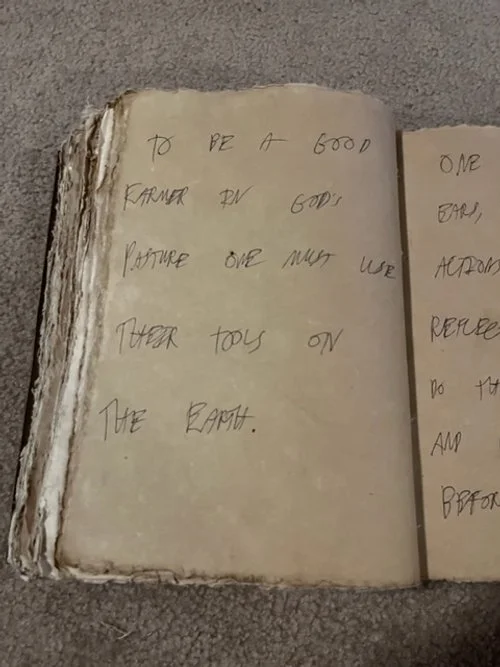 TO BE A GOOD
FARMER IN GOD'S
PASTURE ONE MUST USE
THEIR TOOLS ON
THE EARTH.
ONE
EARS,
ACTIONS
REFLEC
DO TH
AND
BEFOR